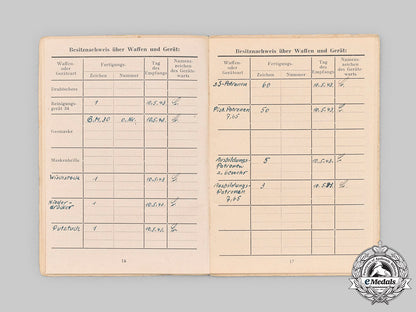 Besitznachweis über Waffen und Gerät:
Waffen- oder Geräteart
Fertigungs-
Zeichen Nummer
Tag des Empfangs
Namenszeichen des Gerätewarts
Drahtschere
Reinigungsgerät 34 1 10.5.43.
Gasmaske B.M.30 o.Nr. 10.5.43.
Maskenbrille
1 10.5.43.
1 10.5.43.
Putztuch 1 10.5.43.
16
Besitznachweis über Waffen und Gerät:
Waffen- oder Geräteart
Fertigungs-
Zeichen Nummer
Tag des Empfangs
Namenszeichen des Gerätewarts
SS-Patronen 60 10.5.43.
Pist. Patronen 50 10.5.43.
7,65
Ausbildungs- 5 10.5.43.
Patronen
z. Gewehr
Ausbildungs- 3
Patronen
7,65
17
eMedals